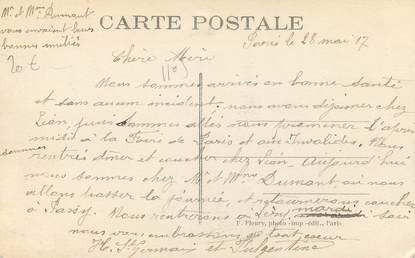 Mr et Mme Dumant
vous envoient leurs
bonnes amitiés
CARTE POSTALE
Paris le 28 mai 17
20 €
Chère Mère
Nous sommes arrivés en bonne santé
et sans aucun incident, nous avons déjeuner chez
Léon puis sommes allés nous promener l'après
midi à la Foire de Paris et aux Invalides. Nous
sommes
rentrés dîner et coucher chez Léon. Aujourd'hui
nous sommes chez Mr et Mme Dumant, où nous
allons passer la journée, et retournerons coucher
à Passy. Nous rentrerons à Léry mardi soir
F. Fleury, photo-imp-édit., Paris
nous vous embrassons de tout coeur
H. St Germain et